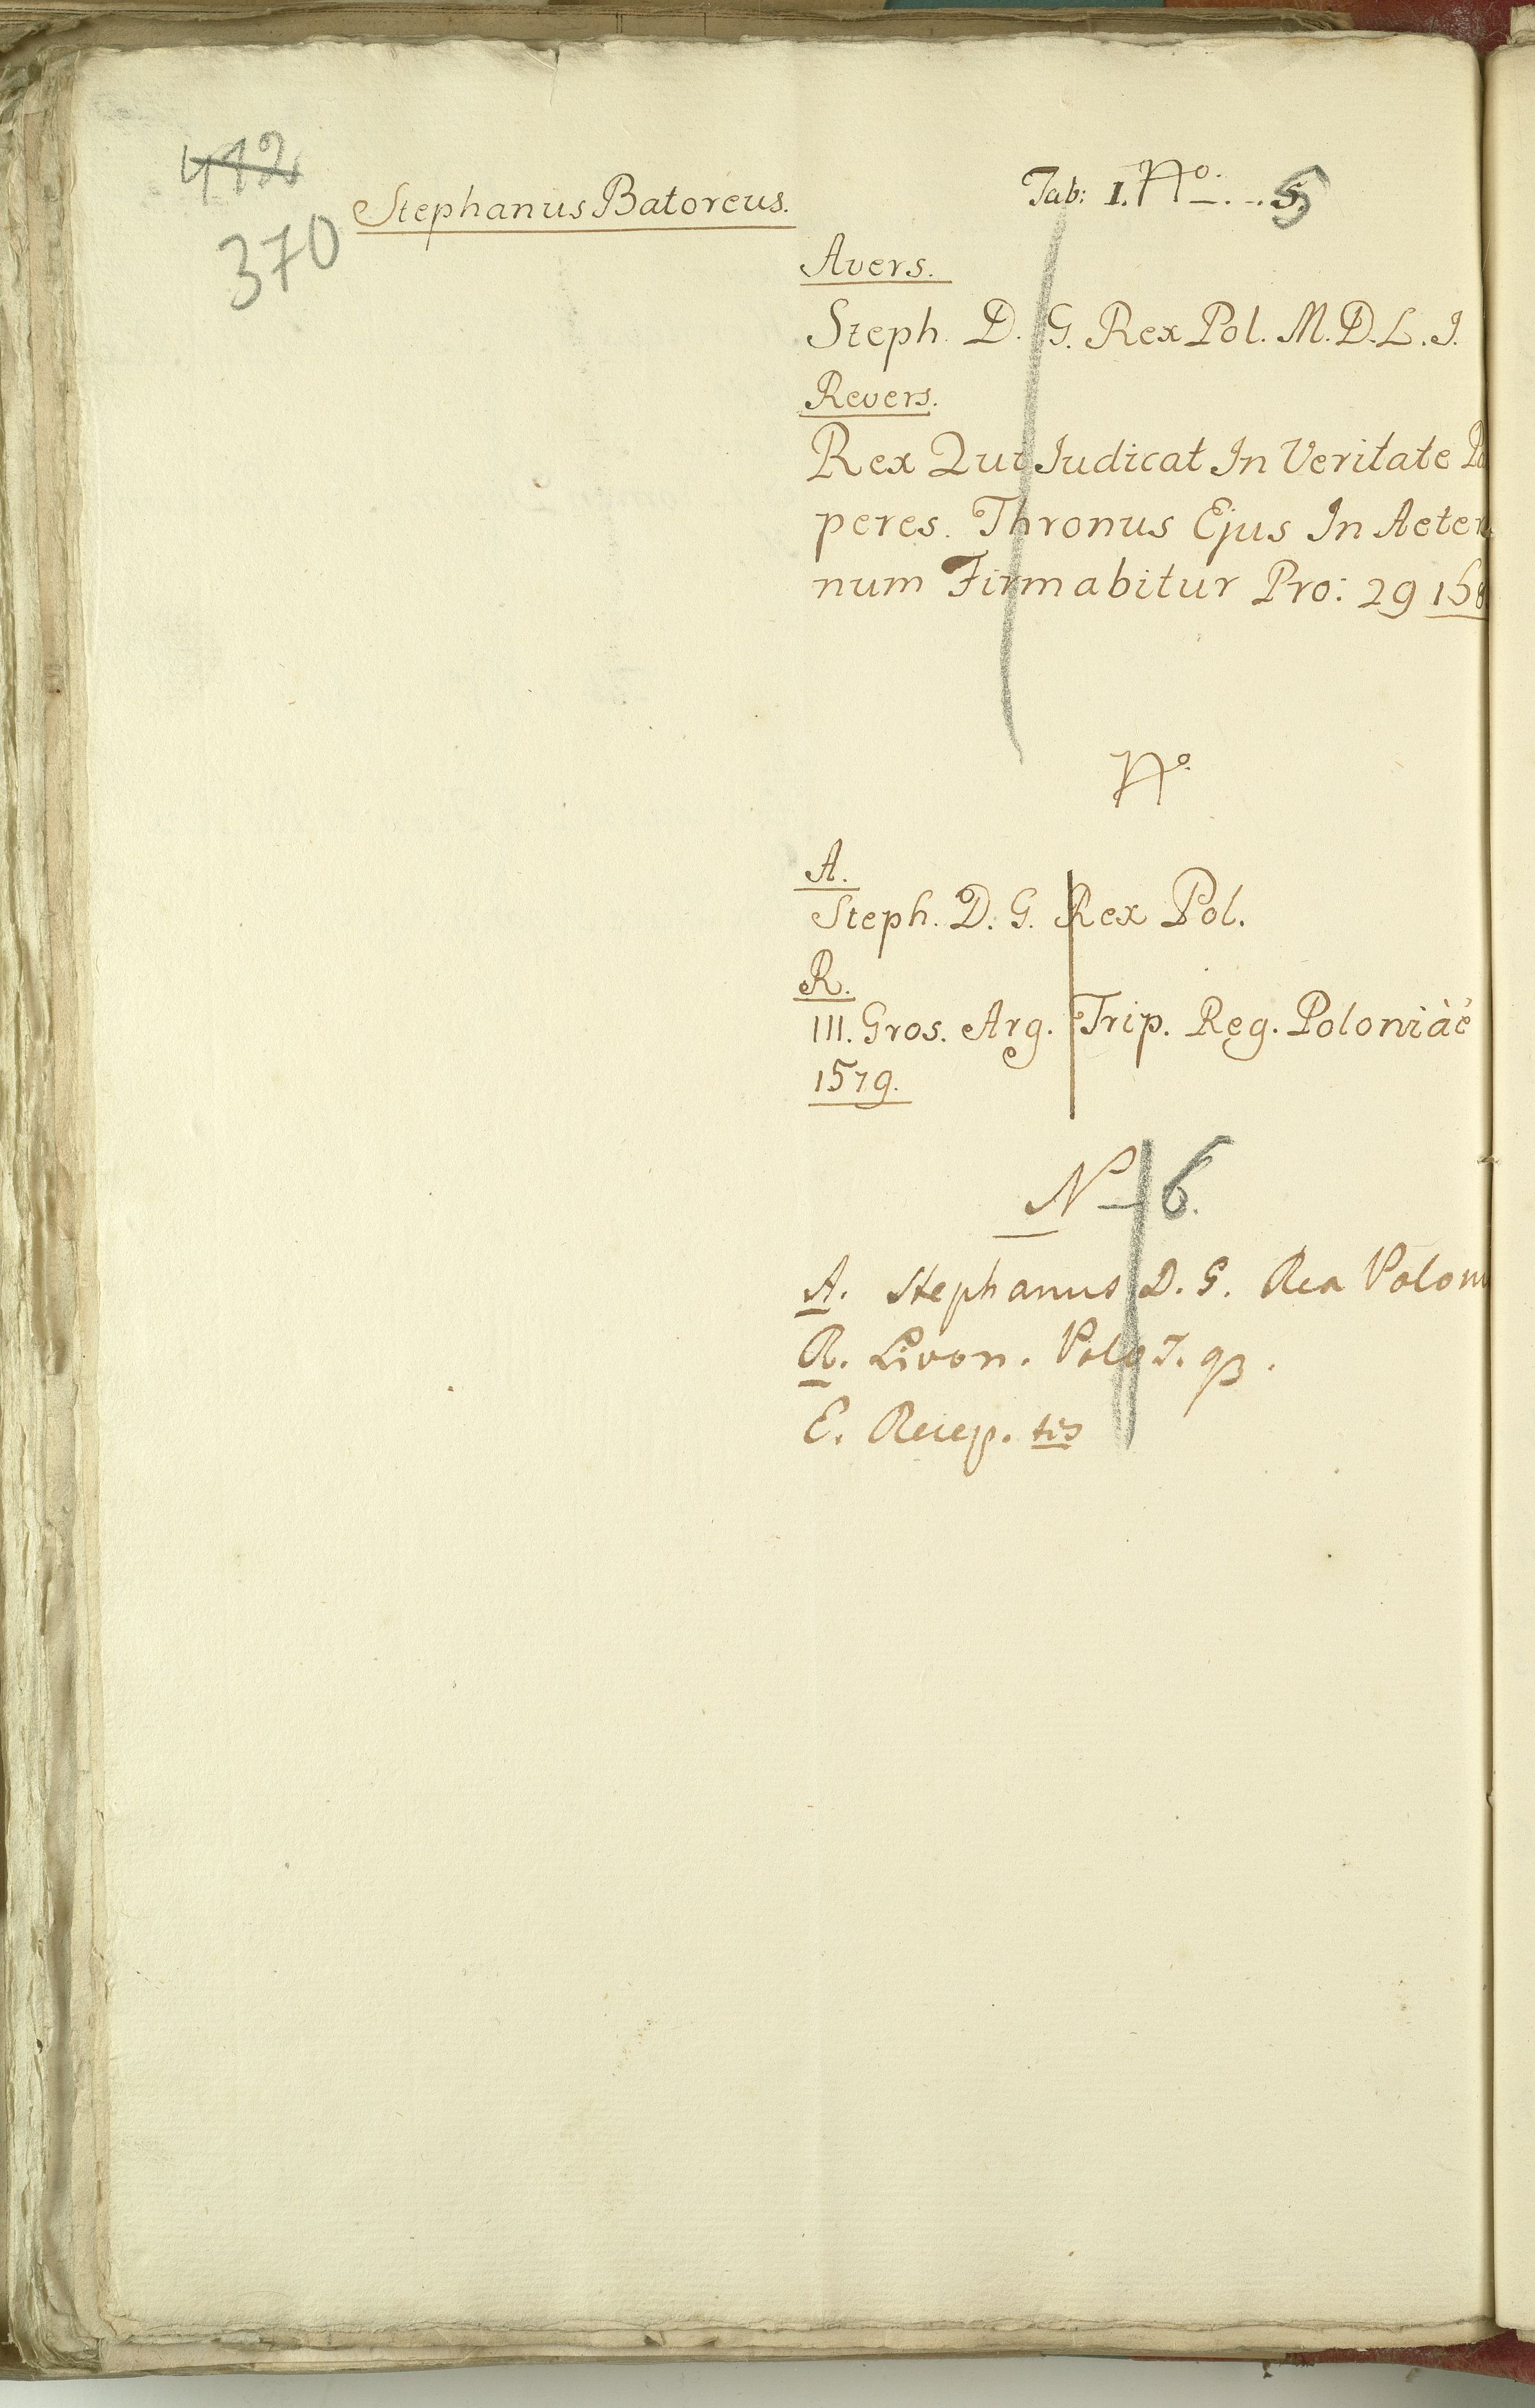 412
370
Stephanus Batoreus.
Tab: I. No. 5.
Avers.
Steph. D. G. Rex Pol. M. D. L. I.
Revers.
Rex Qui Iudicat In Veritate
peres. Thronus Ejus In Aeter
num Firmabitur Pro: 29 158
No.
A.
Steph. D. G. Rex Pol.
R.
III. Gros. Arg. Trip. Reg. Poloniae
1579.
N 6.
A. Stephanus D. G. Rex Polon
R. Livon. Polo T. q3.
E. Recep. tis